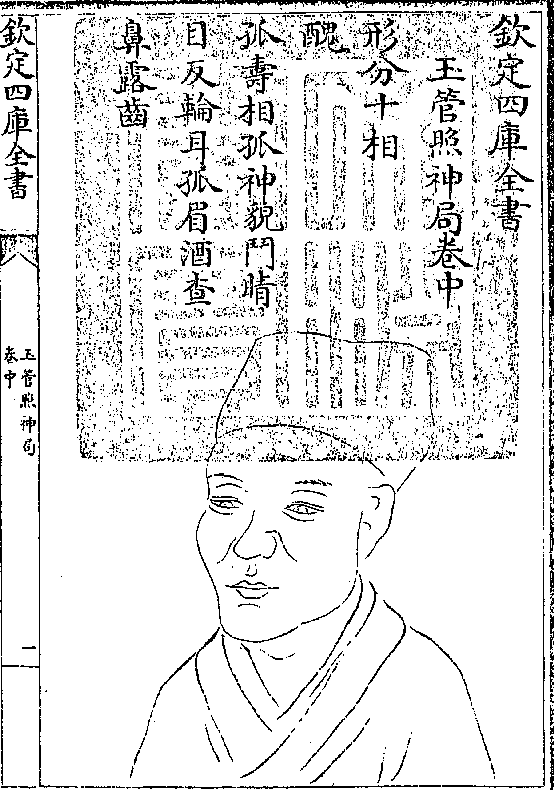 欽定四庫全書
玉管照神局卷中
形分十相
醜
孤壽相孤神貌鬥睛
目反輪耳孤眉酒查
鼻露齒
欽定四庫全書
玉管照神局
卷中
一